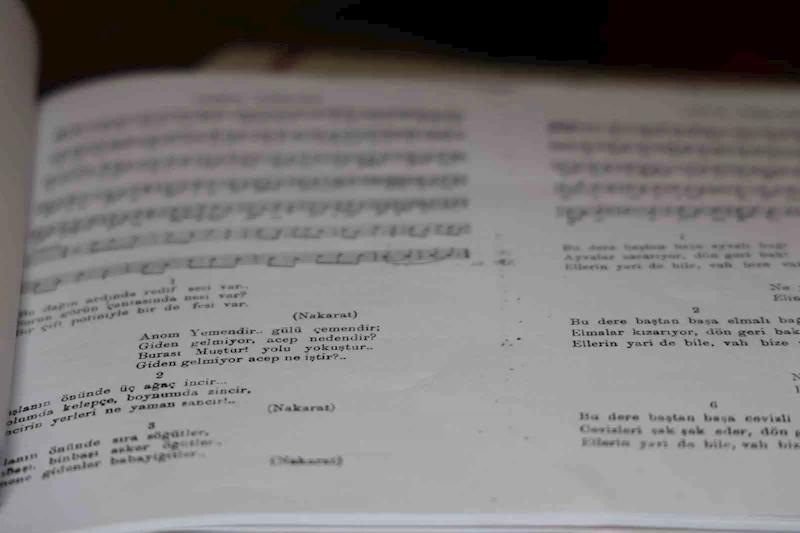 1
Bu dağın ardında redif sesi var..
görün çantasında nesi var?
Bir çift potiniyle bir de fesi var.
(Nakarat)
Anom Yemendir.. gülü çemendir;
Giden gelmiyor, acep nedendir?
Burası Muştur! yolu yokuştur..
Giden gelmiyor acep ne iştir?..
2
şlanın önünde üç ağaç incir...
olumda kelepçe, boynumda zincir,
ncirin yerleri ne yaman sancır!..
(Nakarat)
3
lanın önünde sıra söğütler,
binbaşı asker öğütler..
gidenler babayiğitler..
(Nakarat)
1
Bu dere baştan başa ayvalı bağ!
Ayvalar sararıyor, dön geri bak!
Ellerin yari de bile, vah bize
2
Bu dere baştan başa elmalı bağ
Elmalar kızarıyor, dön geri bak
Ellerin yari de bile, vah bize
6
Bu dere baştan başa cevizli
Cevizleri şak şak eder, dön g
Ellerin yari de bile, vah biz